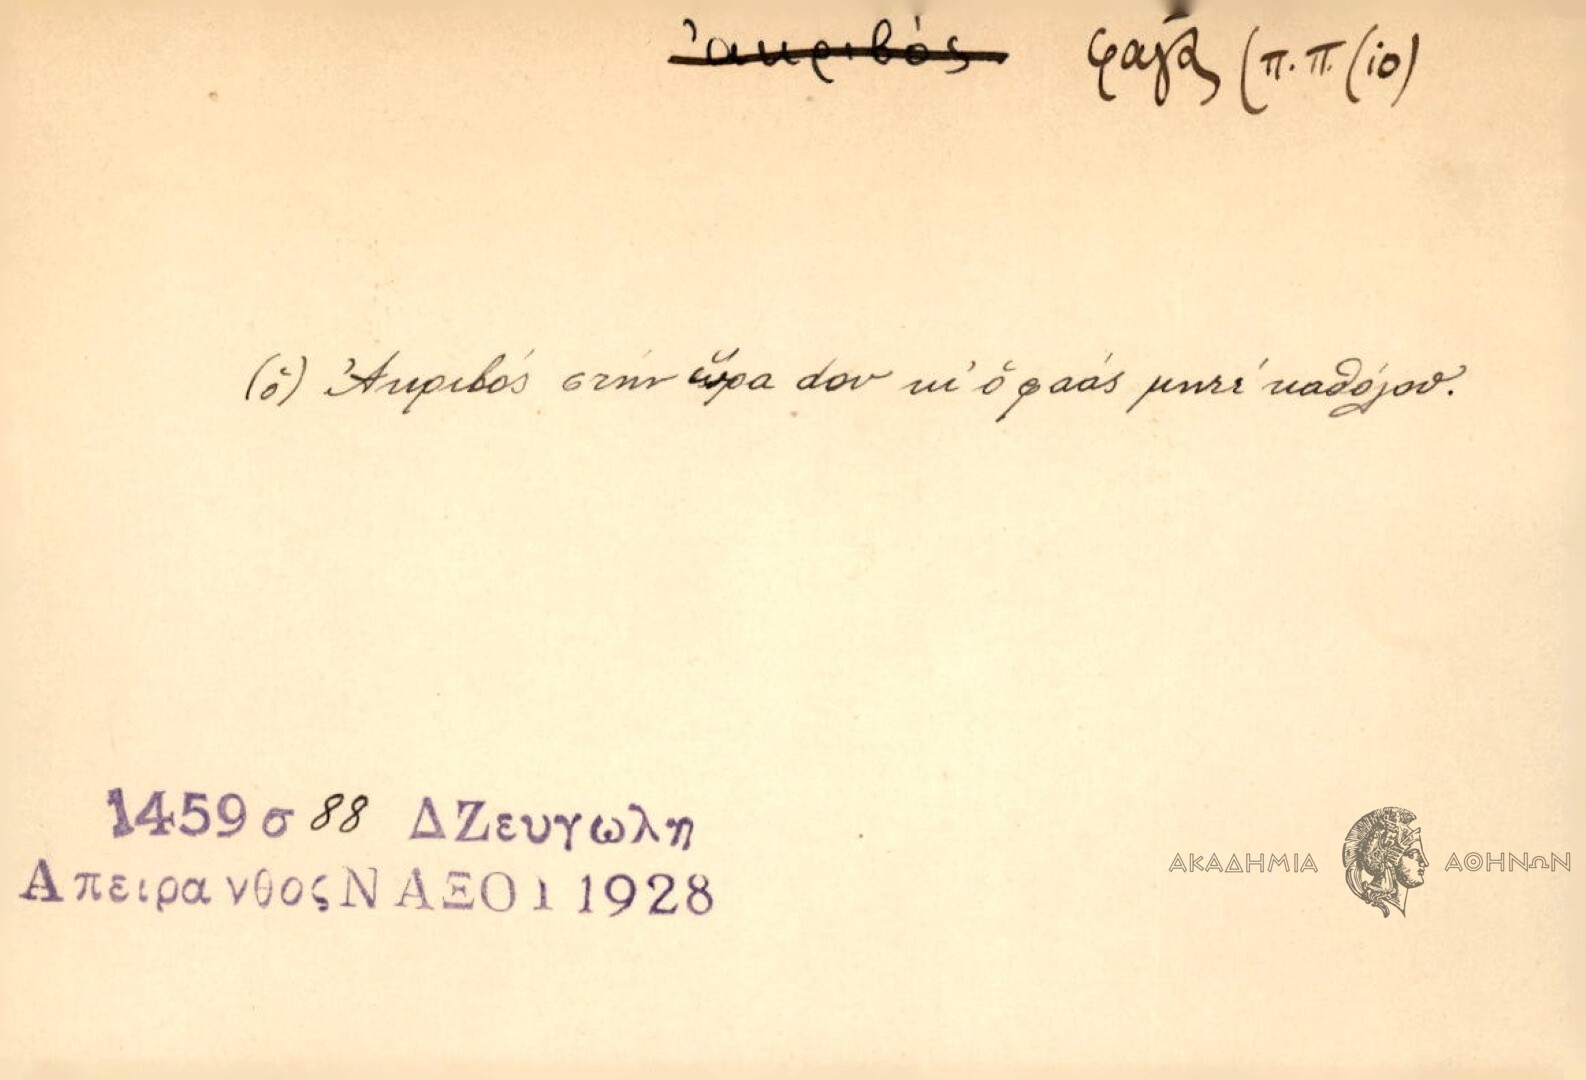 ~~ἀκριβός~~ φαγᾶς (π.π. (ιο)
(ὁ) Ἀκριβός στὴν ὥρα dου κι' ὁ φαάς μητέ καθόjου.
1459 σ 88 ΔΖευγωλη
Απειρανθος ΝΑΞΟΙ 1928
ΑΚΑΔΗΜΙΑ ΑΘΗΝΩΝ